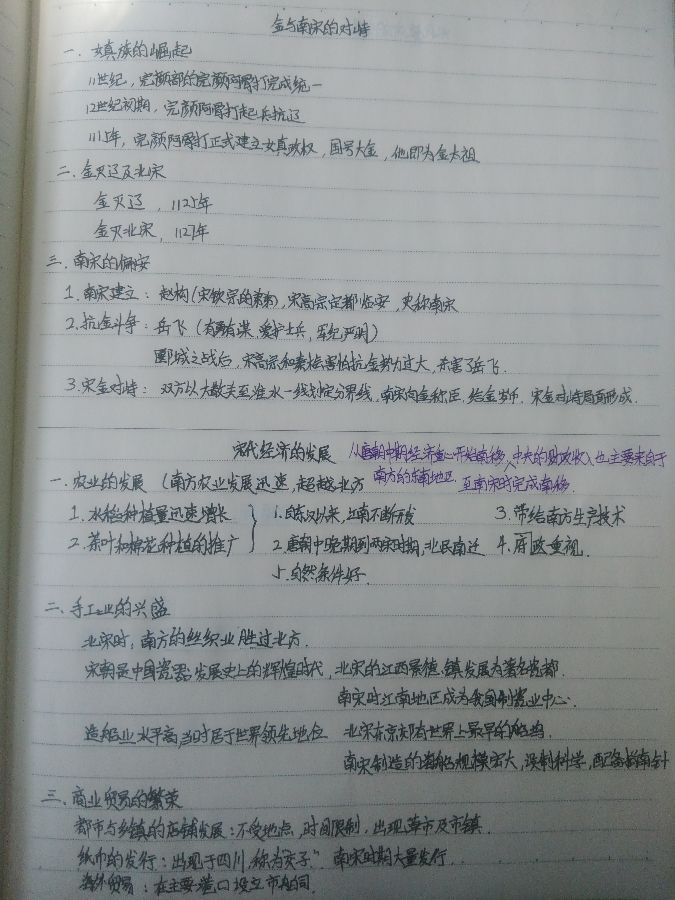 金与南宋的对峙
一、女真族的崛起
11世纪，完颜部的完颜阿骨打完成统一
12世纪初期，完颜阿骨打起兵抗辽
1115年，完颜阿骨打正式建立女真政权，国号大金，他即为金太祖
二、金灭辽及北宋
金灭辽，1125年
金灭北宋，1127年
三、南宋的偏安
1.南宋建立：赵构(宋钦宗的弟弟)，宋高宗定都临安，史称南宋
2.抗金斗争：岳飞(有勇有谋，爱护士兵，军纪严明)
郾城之战后，宋高宗和秦桧害怕抗金势力过大，杀害了岳飞.
3.宋金对峙：双方以大散关至淮水一线划定分界线，南宋向金称臣，给金岁币，宋金对峙局面形成.
宋代经济的发展 从唐朝中期经济重心开始南移，中央的财政收入也主要来自于
南方的东南地区，至南宋时完成南移.
一、农业的发展(南方农业发展迅速，超越北方
1.水稻种植量迅速增长 1.自东汉以来，江南不断开发 3.带给南方生产技术
2.茶叶和棉花种植的推广 2.唐朝中晚期到两宋时期，北民南迁 4.府政重视.
5.自然条件好.
二、手工业的兴盛
北宋时，南方的丝织业胜过北方.
宋朝是中国瓷器发展史上的辉煌时代，北宋的江西景德镇发展为著名瓷都.
南宋时江南地区成为我国制瓷业中心.
造船业水平高，当时居于世界领先地位 北宋东京郊有世界上最早的船坞.
南宋制造的海船规模宏大，设制科学，配备指南针
三、商业贸易的繁荣
都市与乡镇的店铺发展：不受地点，时间限制，出现草市及市镇.
纸币的发行：出现于四川，称为“交子” 南宋时期大量发行.
海外贸易：在主要港口设立市舶司.